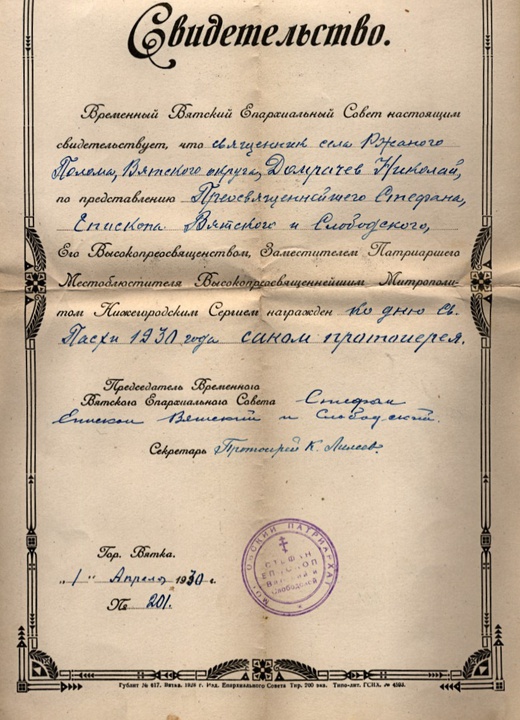 Свидетельство.
Временный Вятский Епархиальный Совет настоящим
свидетельствует, что священник села Ржаного
Полома, Вятского округа, Домрачев Николай,
по представлению Преосвященнейшего Стефана,
Епископа Вятского и Слободского,
Его Высокопреосвященством, Заместителем Патриаршего
Местоблюстителя Высокопреосвященнейшим Митрополи-
том Нижегородским Сергием награжден ко дню Св.
Пасхи 1930 года саном протоиерея.
Председатель Временного
Вятского Епархиального Совета Стефан
Епископ Вятский и Слободской.
Секретарь Протоиерей К.
МОСКОВСКИЙ ПАТРИАРХАТ
СТЕФАН
ЕПИСКОП
Вятский и
Слободской
Гор. Вятка.
"1" Апреля 1930 г.
№ 201.
Гублит № 617. Вятка. 1929 г. Изд. Епархиального Совета Тир. 200 экз. Типо-лит. ГСНХ. №